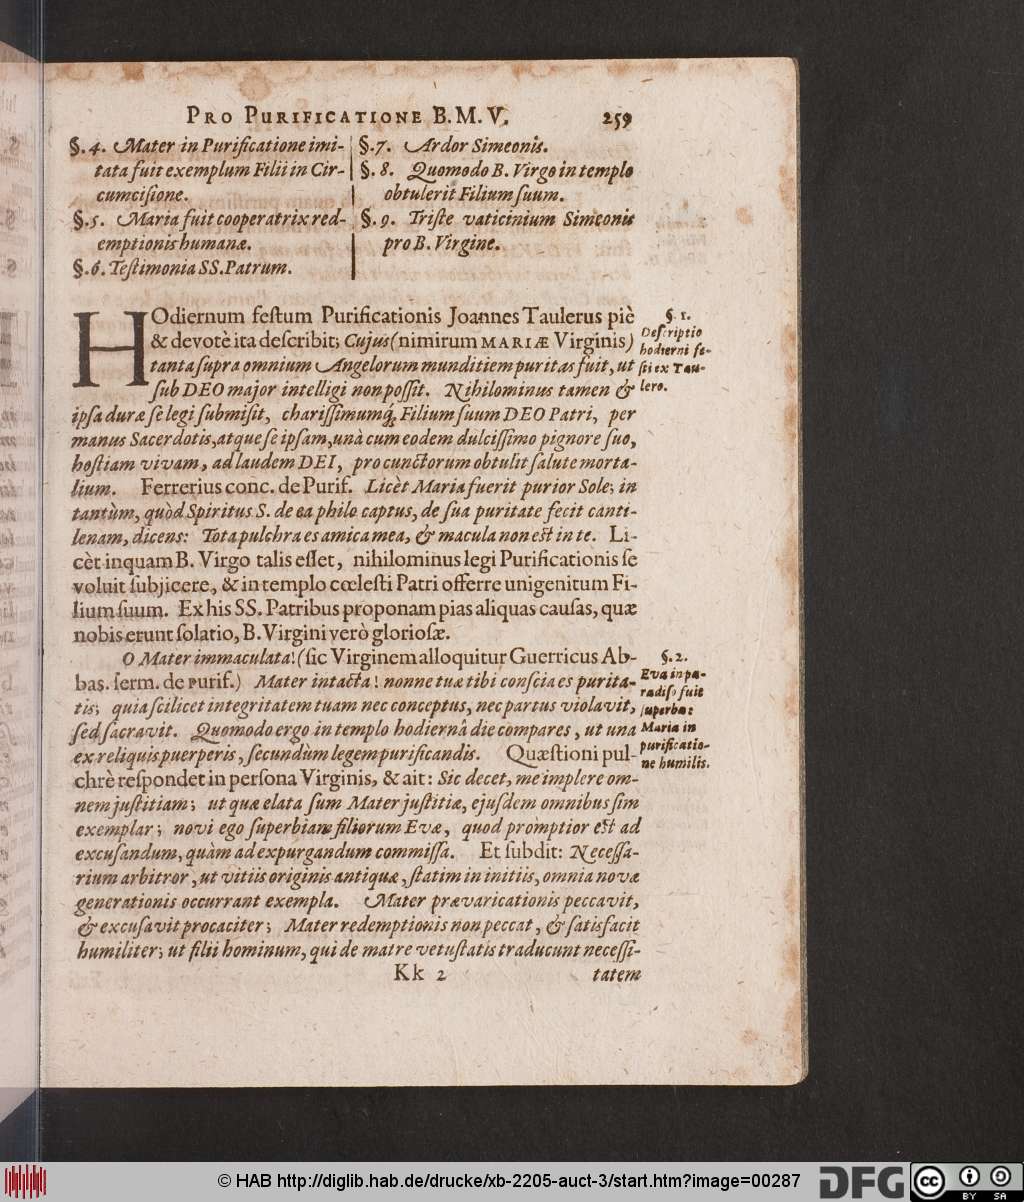 PRO PURIFICATIONE B. M. V. 259
§. 4. Mater in Purificatione imi-
tata fuit exemplum Filii in Cir-
cumcisione.
§. 5. Maria fuit cooperatrix red-
emptionis humanæ.
§. 6. Testimonia SS. Patrum.
§. 7. Ardor Simeonis.
§. 8. Quomodo B. Virgo in templo
obtulerit Filium suum.
§. 9. Triste vaticinium Simeonis
pro B. Virgine.
HOdiernum festum Purificationis Joannes Taulerus piè
& devotè ita describit; Cujus (nimirum MARIÆ Virginis)
tanta supra omnium Angelorum munditiem puritas fuit, ut
sub DEO major intelligi non possit. Nihilominus tamen &
ipsa duræ se legi submisit, charissimumq́; Filium suum DEO Patri, per
manus Sacerdotis, atque se ipsam, unà cum eodem dulcissimo pignore suo,
hostiam vivam, ad laudem DEI, pro cunctorum obtulit salute morta-
lium. Ferrerius conc. de Purif. Licèt Maria fuerit purior Sole; in
tantùm, quòd Spiritus S. de ea philo captus, de sua puritate fecit canti-
lenam, dicens: Tota pulchra es amica mea, & macula non est in te. Li-
cèt inquam B. Virgo talis esset, nihilominus legi Purificationis se
voluit subjicere, & in templo cœlesti Patri offerre unigenitum Fi-
lium suum. Ex his SS. Patribus proponam pias aliquas causas, quæ
nobis erunt solatio, B. Virgini verò gloriosæ.
§. 1.
Descriptio
hodierni fe-
sti ex Tau-
lero.
O Mater immaculata! (sic Virginem alloquitur Guerricus Ab-
bas. serm. de Purif.) Mater intacta! nonne tuæ tibi conscia es purita-
tis; quia scilicet integritatem tuam nec conceptus, nec partus violavit,
sed sacravit. Quomodo ergo in templo hodiernâ die compares, ut una
ex reliquis puerperis, secundùm legem purificandis. Quæstioni pul-
chrè respondet in persona Virginis, & ait: Sic decet, me implere om-
nem justitiam; ut quæ elata sum Mater justitiæ, ejusdem omnibus sim
exemplar; novi ego superbiam filiorum Evæ, quod promptior est ad
excusandum, quàm ad expurgandum commissa. Et subdit: Necessa-
rium arbitror, ut vitiis originis antiquæ, statim in initiis, omnia novæ
generationis occurrant exempla. Mater prævaricationis peccavit,
& excusavit procaciter; Mater redemptionis non peccat, & satisfacit
humiliter; ut filii hominum, qui de matre vetustatis traducunt necessi-
§. 2.
Eva in pa-
radiso fuit
superba:
Maria in
purificatio-
ne humilis.
Kk 2 tatem
© HAB http://diglib.hab.de/drucke/xb-2205-auct-3/start.htm?image=00287
DFG
cc BY SA